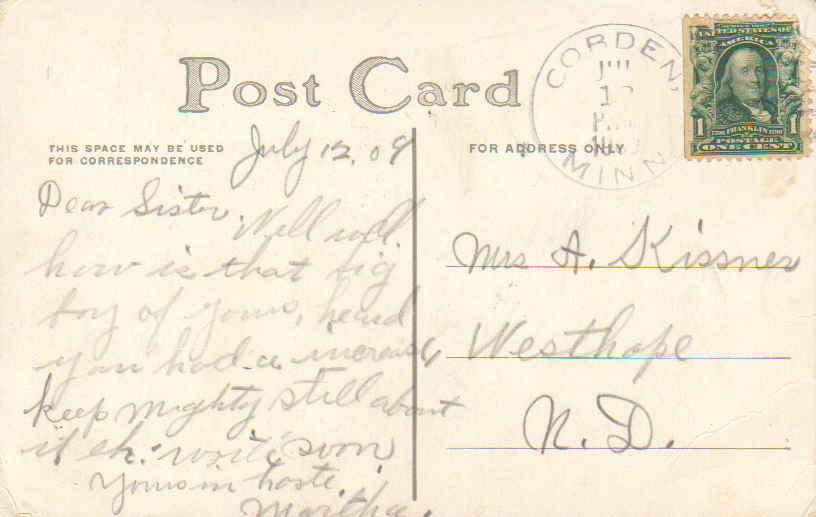 Post Card
THIS SPACE MAY BE USED
FOR CORRESPONDENCE
FOR ADDRESS ONLY
COBDEN,
MINN
UNITED STATES OF
AMERICA
1 FRANKLIN 1
POSTAGE
ONE CENT
July 12, 09
Dear Sister,
Well well
how is that big
boy of yours, heard
you had a increase
keep mighty still about
it eh. write soon
Yours in haste.
Martha.
Mrs A. Kissner
Westhope
N. D.